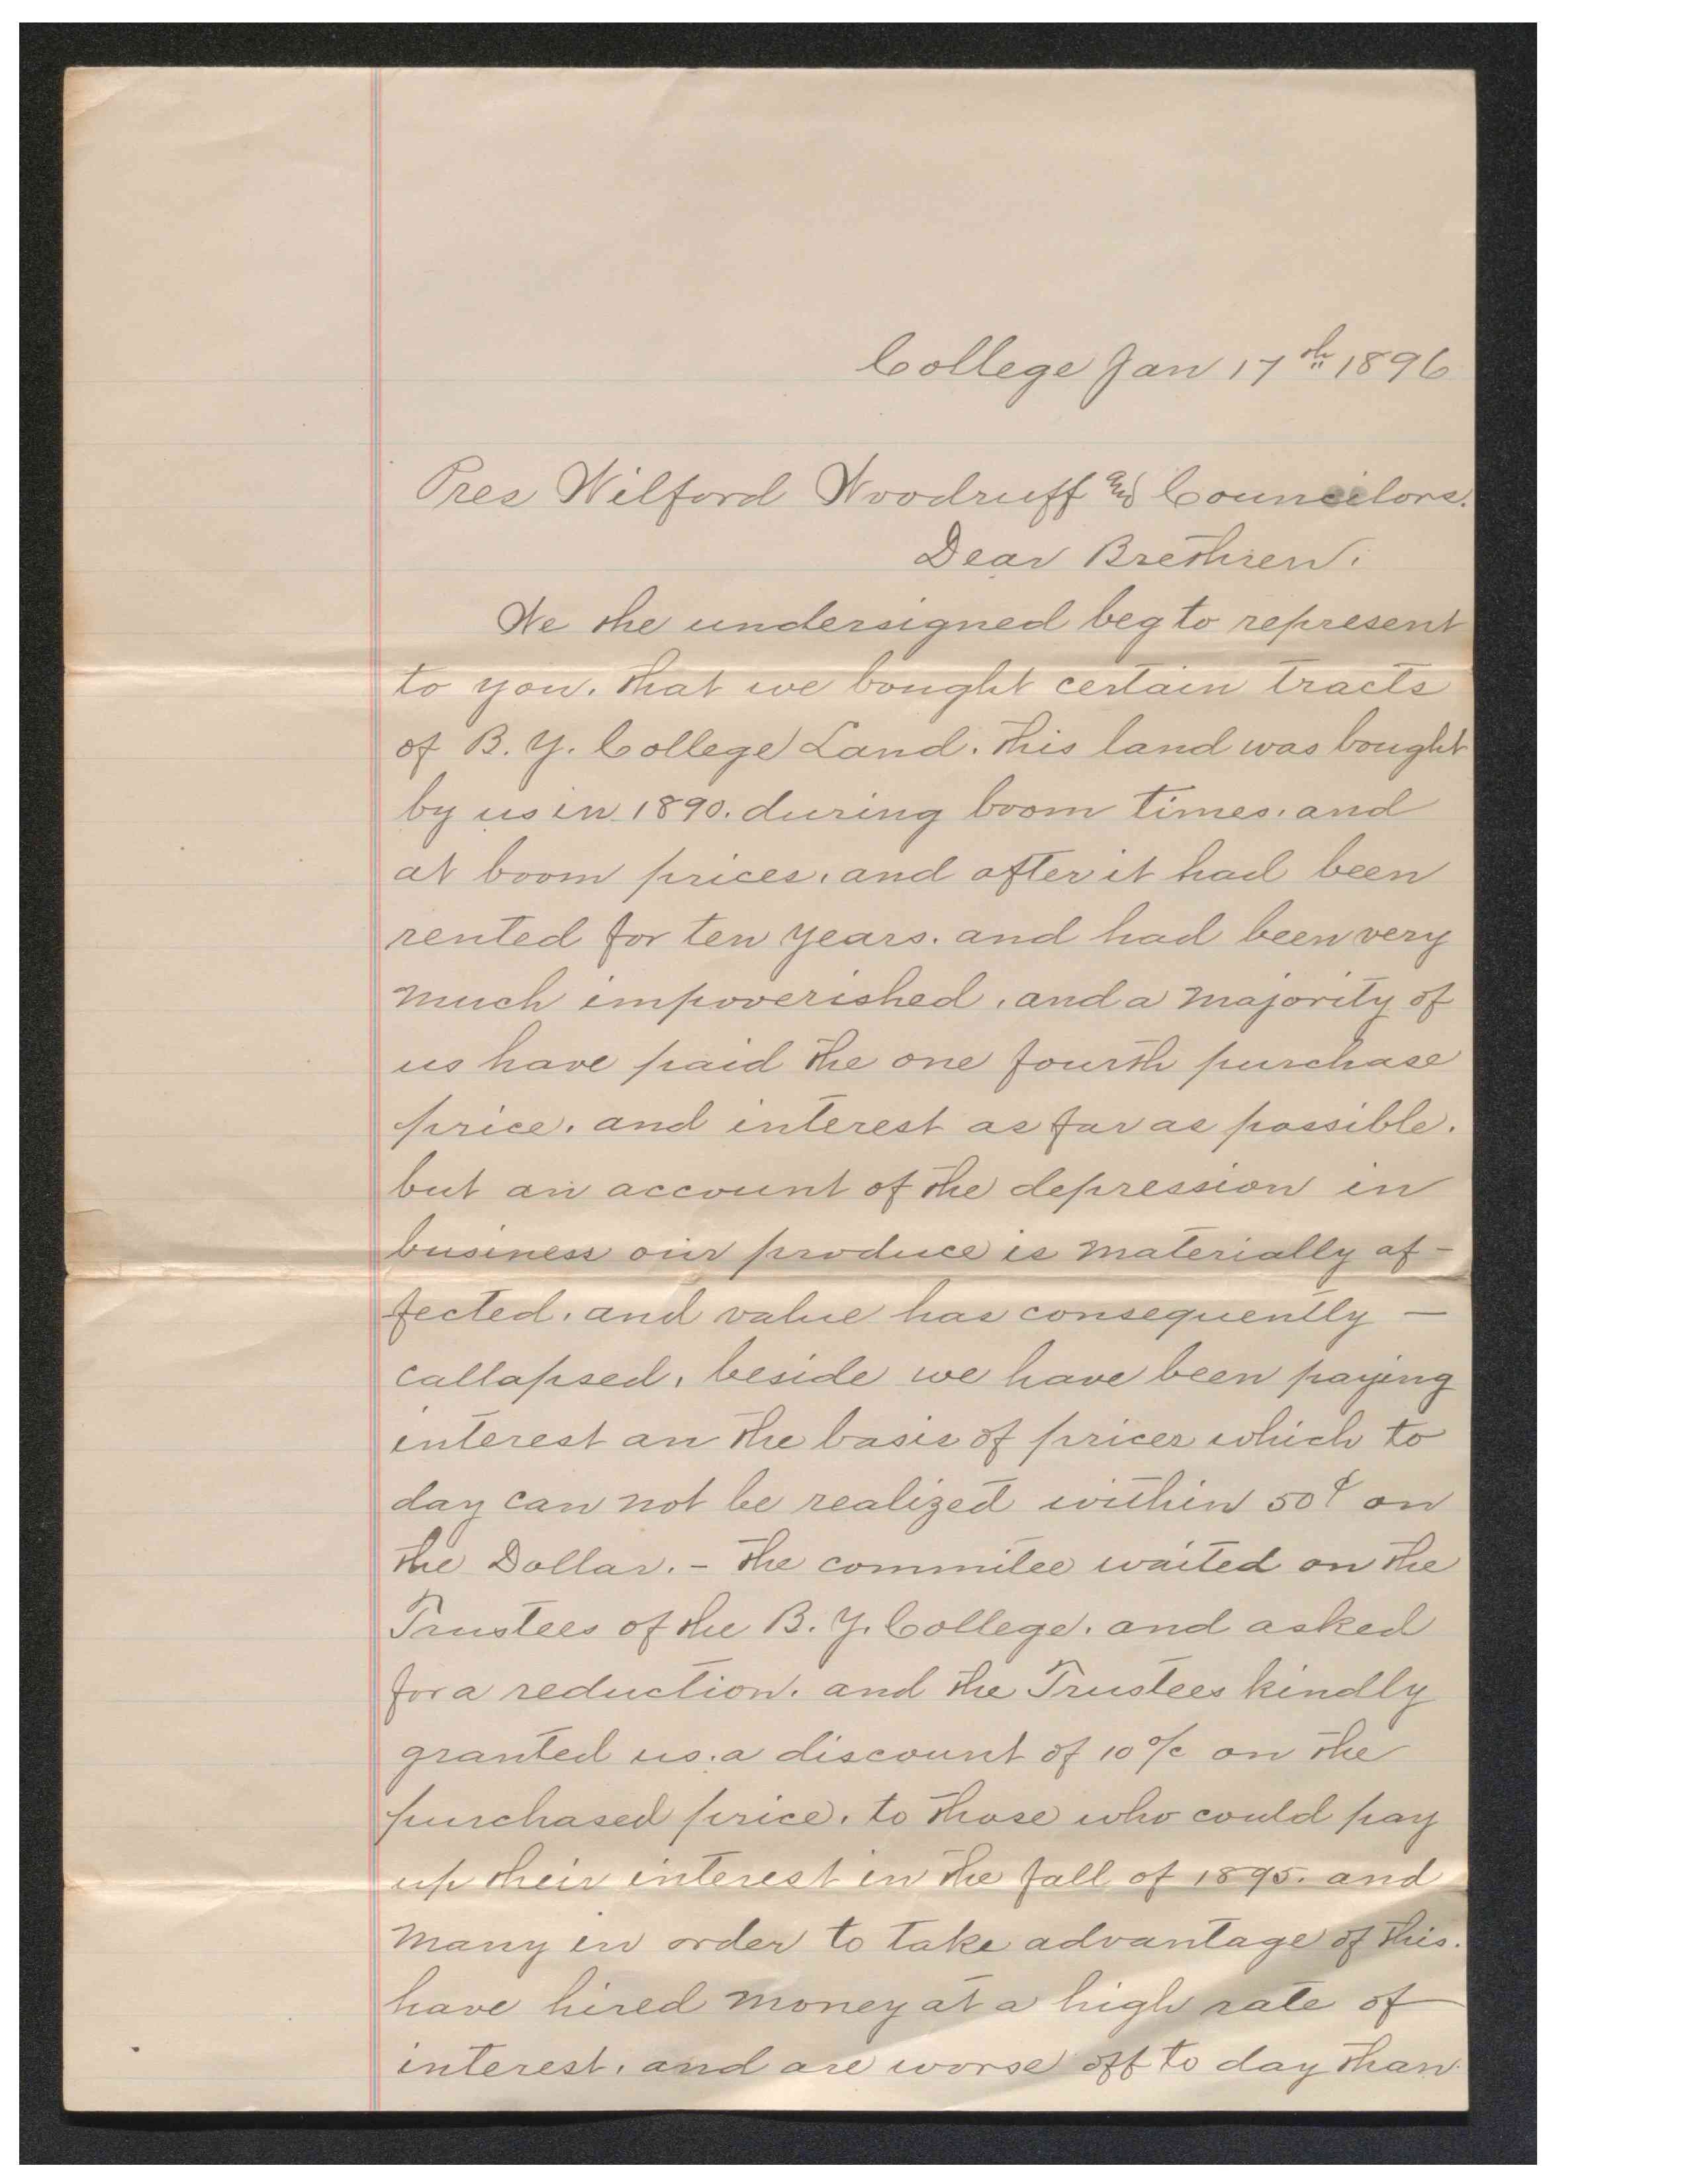 College Jan 17th 1896
Pres Wilford Woodruff and Councilors.
Dear Brethren.
We the undersigned beg to represent
to you. that we bought certain tracts
of B. Y. College Land. this land was bought
by us in 1890. during boom times. and
at boom prices. and after it had been
rented for ten years. and had been very
much impoverished. and a majority of
us have paid the one fourth purchase
price. and interest as far as possible.
but an account of the depression in
business our produce is materially af-
fected. and value has consequently —
callapsed. beside we have been paying
interest an the basis of prices which to
day can not be realized within 50¢ on
the Dollar. - the commitee waited on the
Trustees of the B. Y. College. and asked
for a reduction. and the Trustees kindly
granted us. a discount of 10% on the
purchased price. to those who could pay
up their interest in the fall of 1895. and
many in order to take advantage of this.
have hired money at a high rate of
interest. and are worse off to day than